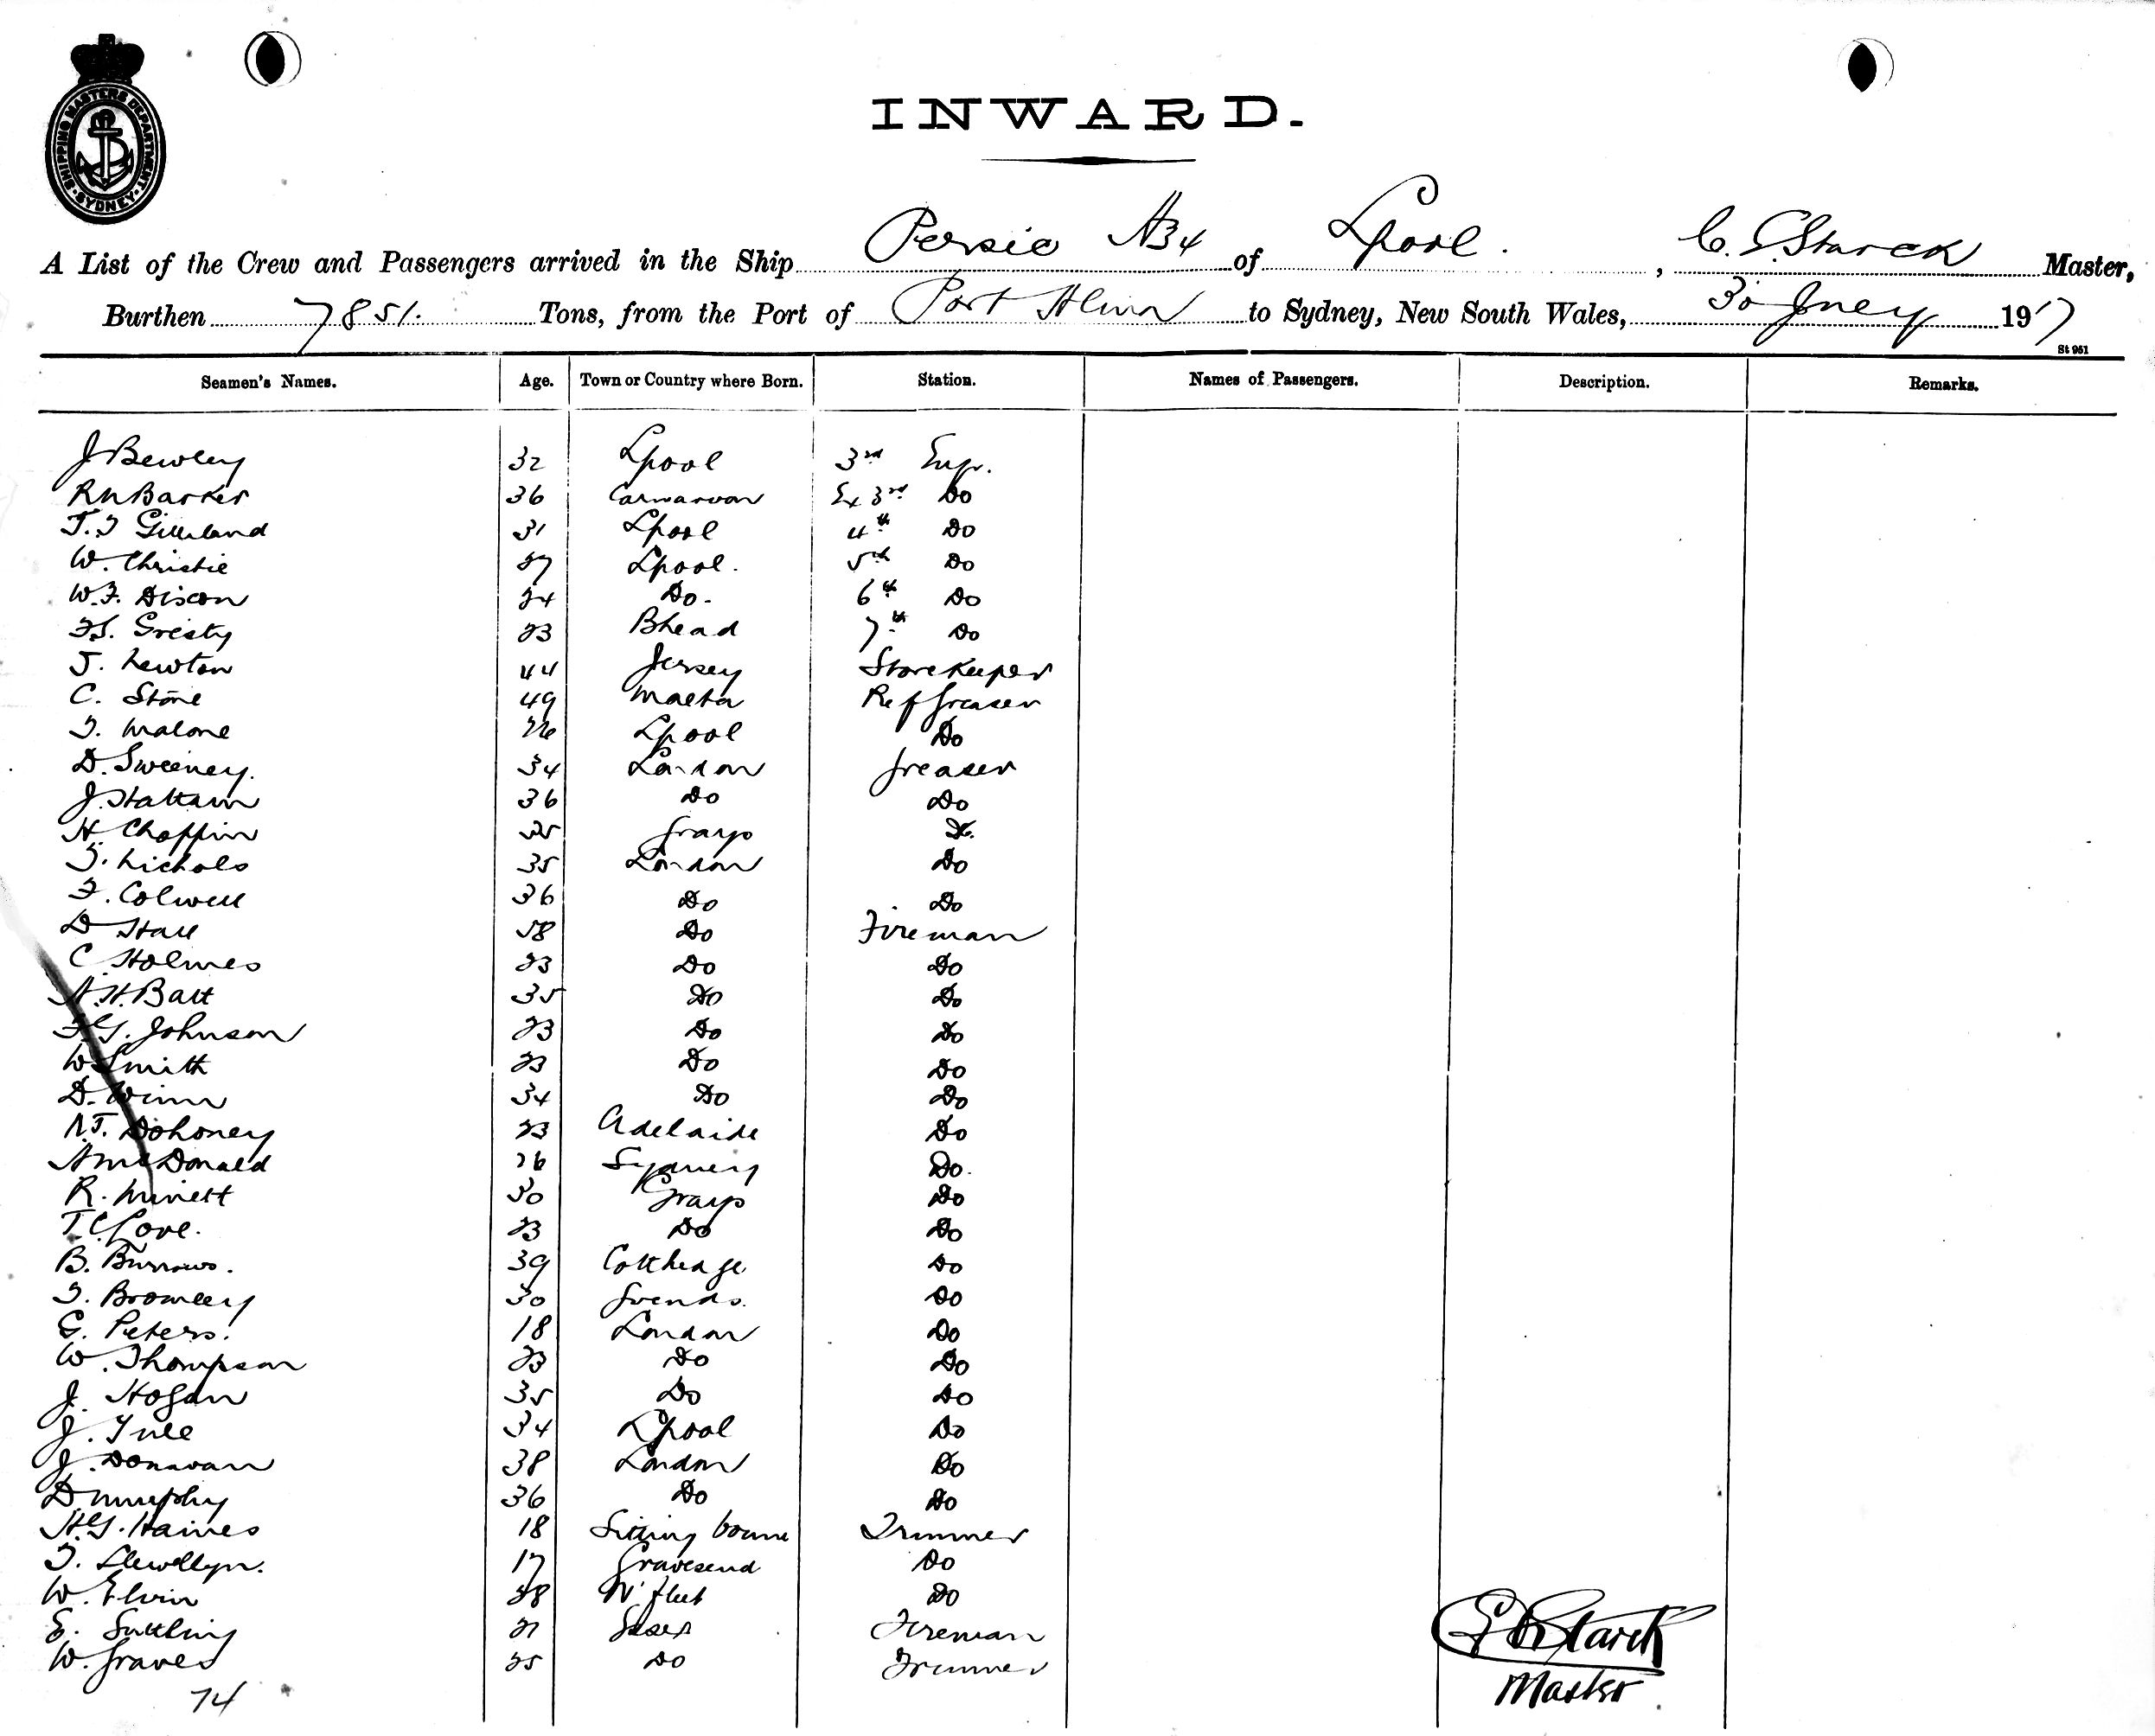 SHIPPING MASTERS DEPARTMENT. SYDNEY
INWARD.
A List of the Crew and Passengers arrived in the Ship Persic A34 of Lpool. , Master,
Burthen 7851. Tons, from the Port of Port to Sydney, New South Wales, 30 1917
St 961
Seamen's Names. Age. Town or Country where Born. Station. Names of Passengers. Description. Remarks.
J Bewley 32 Lpool 3rd Engr.
R Barker 36 Carnarvon Ex 3rd Do
Gilleland 31 Lpool 4th Do
W. Christie 27 Lpool. 5th Do
W.F. 24 Do. 6th Do
Gresty 23 Bhead 7th Do
J. Newton 44 Jersey Storekeeper
C. Stone 49 Malta Ref Greaser
T. Malone 26 Lpool Do
D. Sweeney. 34 London Greaser
J. Hallam 36 Do Do
H. Choppin Grays Do.
T. Nichols 35 London Do
F. Colwell 36 Do Do
D Hall 58 Do Fireman
C. Holmes 23 Do Do
A.H. Batt 35 Do Do
Johnson 23 Do Do
W Smith 23 Do Do
D. Winn 34 Do Do
Dohoney 23 Adelaide Do
A McDonald 26 Sydney Do.
R. Minett 30 Grays Do
T.C. Love. 23 Do Do
B. Burrows. 39 Do
T. Bromley 30 Do
G. Peters. 18 London Do
W. Thompson 23 Do Do
J. Hogan 35 Do Do
J. Tull 34 Lpool Do
J. Donavan 38 London Do
D. Murphy 36 Do Do
H.G. Haines 18 Sitting bourne Trimmer
T. Llewellyn. 17 Gravesend Do
W. Elvin 28 N'fleet Do
E. Suttling 21 Fireman
W. Graves 25 Do Trimmer
74
Starck
Master.